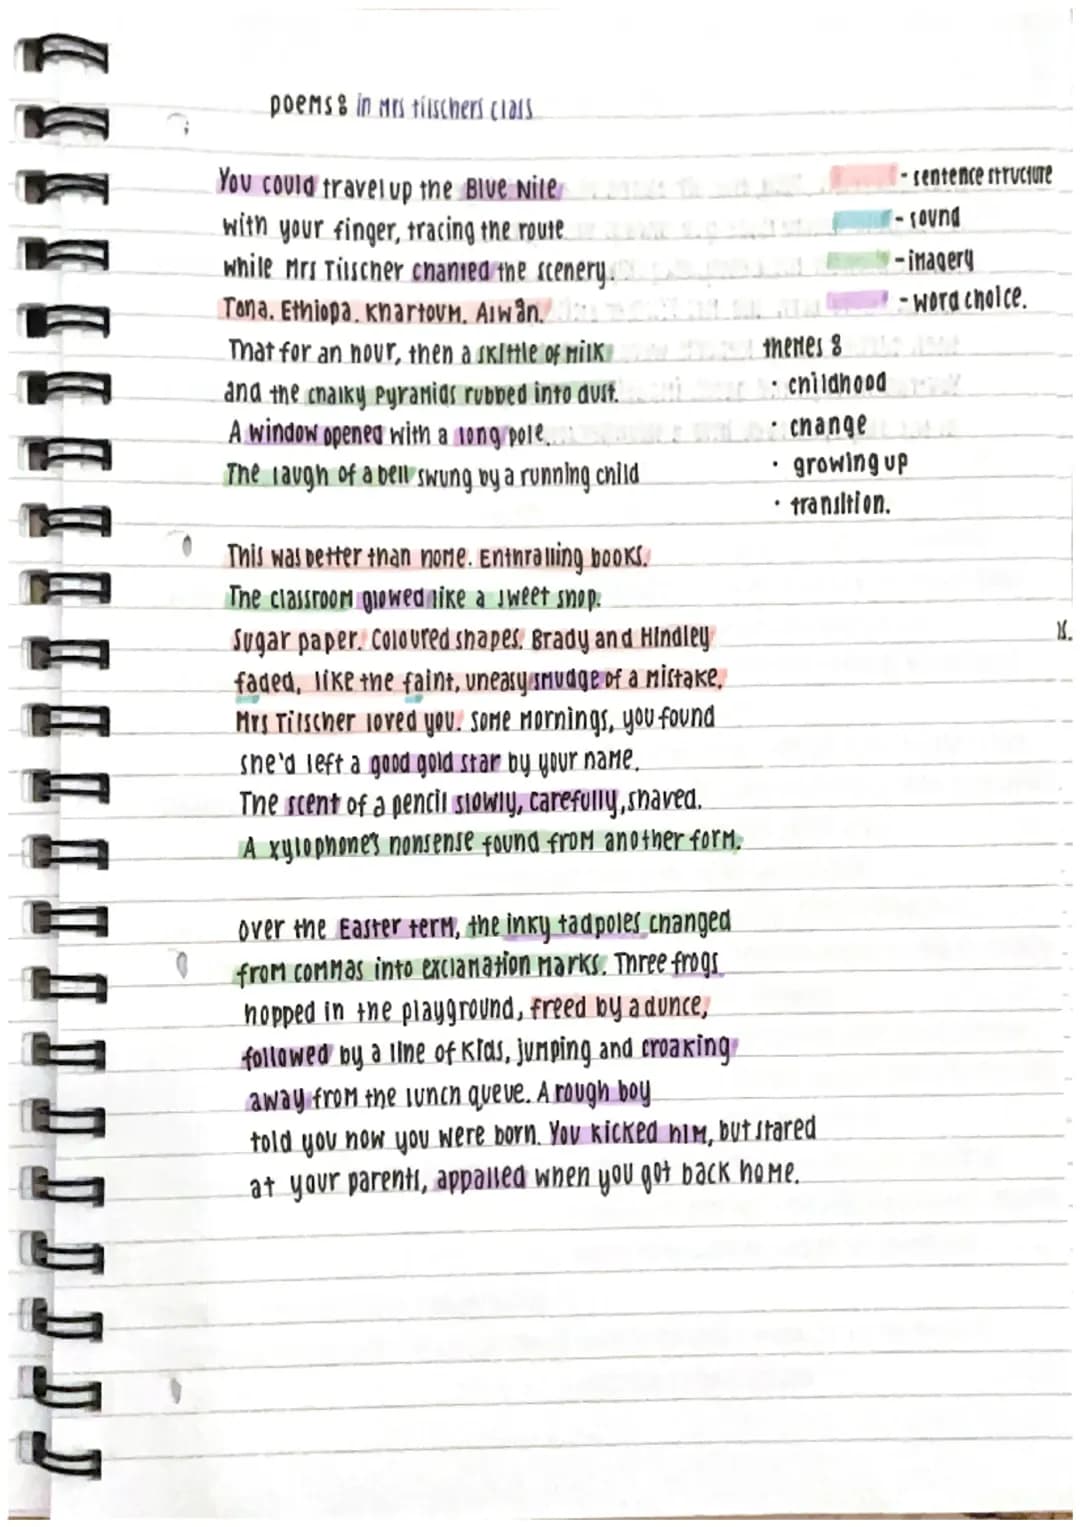 poems: in Mrs tilschers class
You could travel up the Blue Nile
- sentence structure
with your finger, tracing the route
- sound
while Mrs Tilscher chanted the scenery.
- imagery
Tana. Ethiopa. Khartoum. Aswân.
- word choice.
That for an hour, then a skittle of milk
themes:
and the chalky Pyramids rubbed into dust.
· childhood
A window opened with a long pole.
· change
The laugh of a bell swung by a running child
· growing up
· transition.
This was better than home. Enthralling books.
The classroom glowed like a sweet shop.
Sugar paper. Coloured shapes. Brady and Hindley
faded, like the faint, uneasy smudge of a mistake.
Mrs Tilscher loved you. Some mornings, you found
she'd left a good gold star by your name.
The scent of a pencil slowly, carefully, shaved.
A xylophone's nonsense found from another form.
over the Easter term, the inky tadpoles changed
from commas into exclamation marks. Three frogs
hopped in the playground, freed by a dunce,
followed by a line of kids, jumping and croaking
away from the lunch queue. A rough boy
told you how you were born. You kicked him, but stared
at your parents, appalled when you got back home.